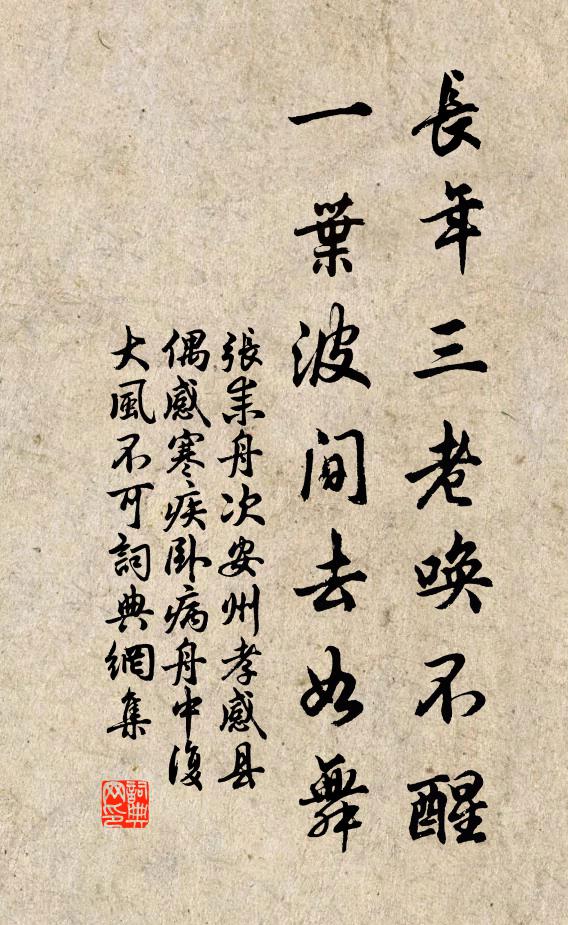 長年三老喚不醒
一葉波間去如舞
張耒舟次安州孝感县
偶感寒疾卧病舟中復
大風不可詞典網集
詞典
网印